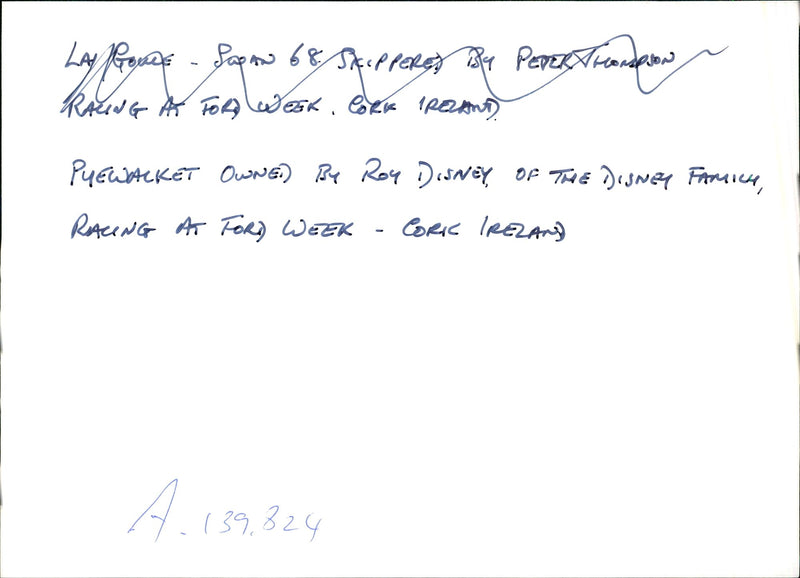 - Swan 68 Skippered By Peter Thompson
Racing At Ford Week. Cork Ireland.
Pyewacket Owned By Roy Disney, of the Disney Family,
Racing At Ford Week - Cork Ireland
A. 139.824